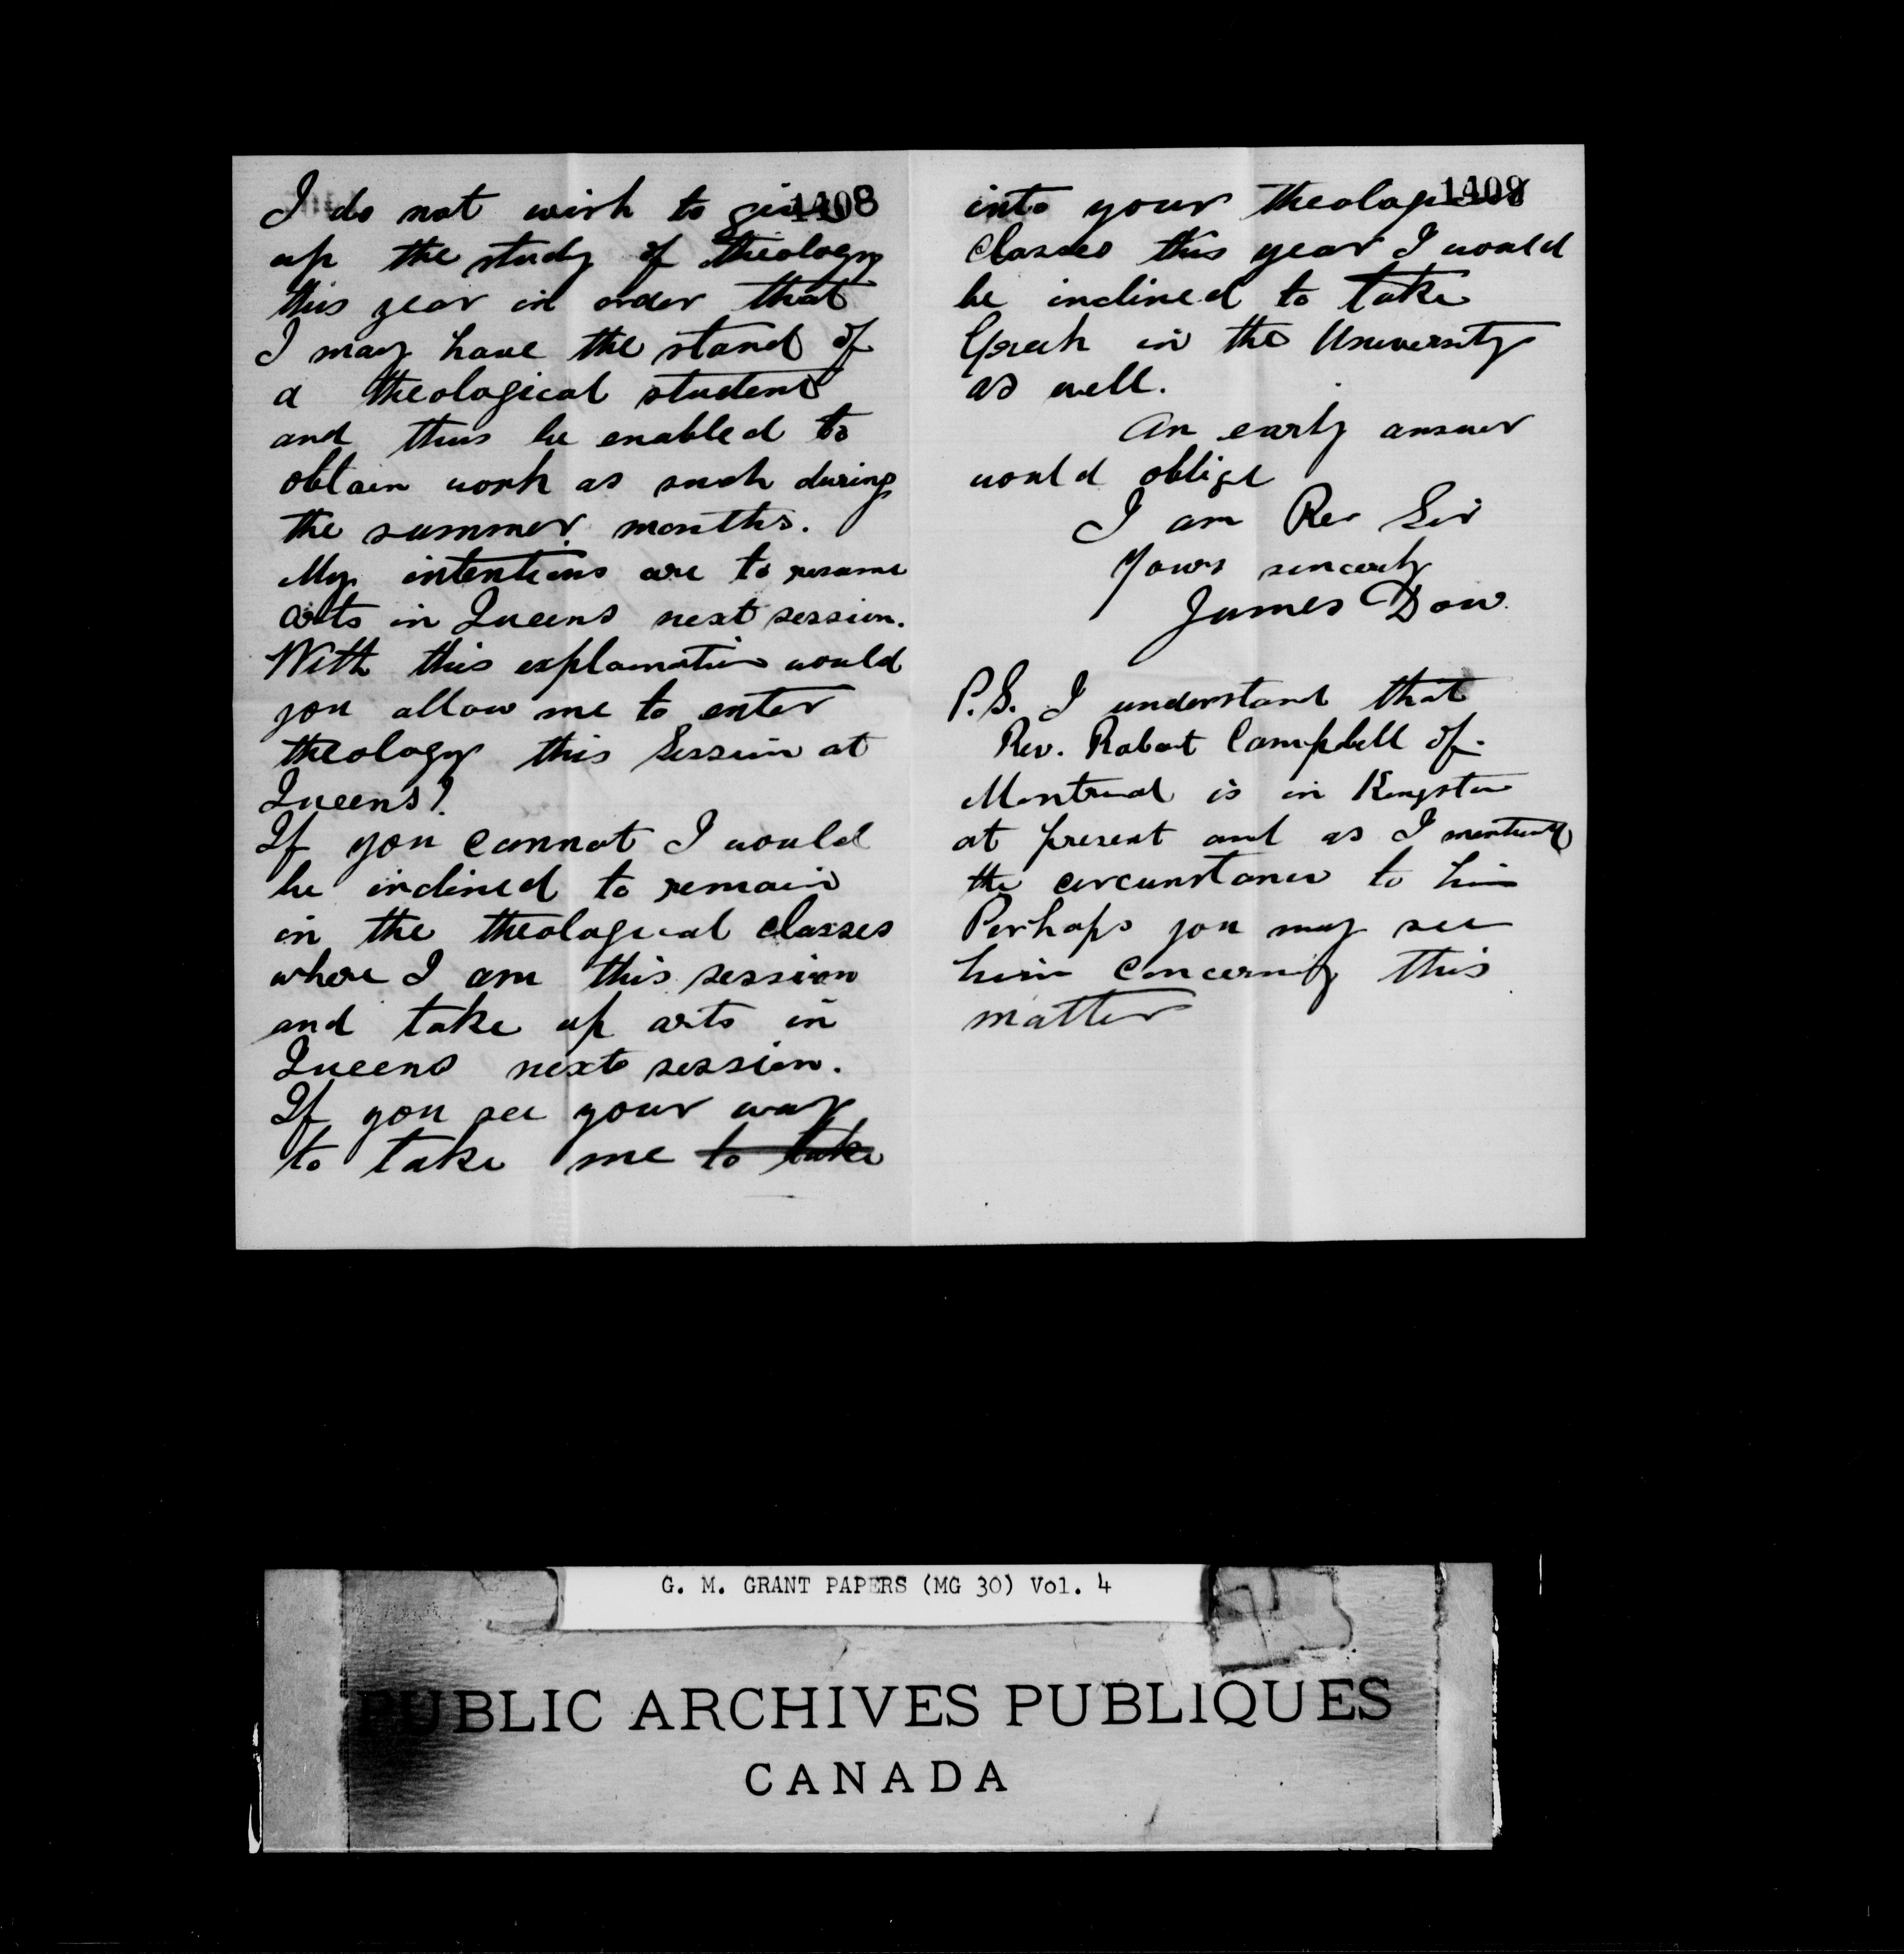 1408
I do not wish to give
up the study of theology
this year in order that
I may have the stand of
a theological student
and thus be enabled to
obtain work as such during
the summer months.
My intentions are to resume
arts in Queens next session.
With this explanation would
you allow me to enter
theology this Session at
Queens?
If you cannot I would
be inclined to remain
in the theological classes
where I am this session
and take up arts in
Queens next session.
If you see your way
to take me to take
1409
into your theological
Classes this year I would
be inclined to take
Greek in the University
as well.
An early answer
would oblige
I am Rev Sir
Yours sincerely
James Dow.
P.S. I understand that
Rev. Robert Campbell of
Montreal is in Kingston
at present and as I mentioned
the circumstance to him
Perhaps you may see
him concerning this
matter
G. M. GRANT PAPERS (MG 30) Vol. 4
PUBLIC ARCHIVES PUBLIQUES
CANADA